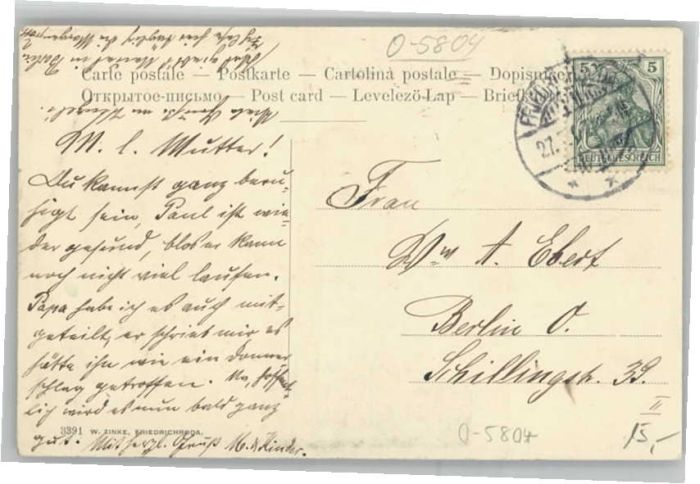 0-5804
Carte postale — Postkarte — Cartolina postale —
Открытое-письмо — Post card — Levelező-Lap —
5 5
DEUTSCHES REICH
27.
M. l. Mutter!
Du kannst ganz beru-
higt sein, Paul ist wie-
der gesund, blos er kann
noch nicht viel laufen.
Papa habe ich es auch mit-
geteilt, er schrieb mir es
hätte ihn wie ein Donner
schlag getroffen. Na, hoffent-
lich wird es nun bald ganz
gut. Mit herzl. Gruß M. & Kinder.
Frau
Ww A. Ebert
Berlin O.
Schillingstr. 32.
II
15,-
0-5804
3391 W. ZINKE, FRIEDRICHRODA.